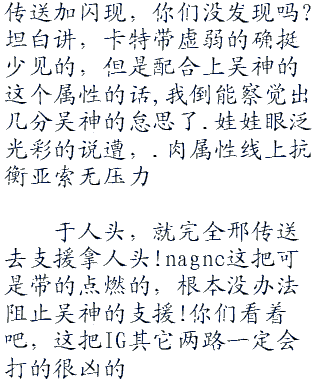 传送加闪现，你们没发现吗?
坦白讲，卡特带虚弱的确挺
少见的，但是配合上吴神的
这个属性的话,我倒能察觉出
几分吴神的意思了.娃娃眼泛
光彩的说遭，.肉属性线上抗
衡亚索无压力
于人头，就完全邢传送
去支援拿人头!nagnc这把可
是带的点燃的，根本没办法
阻止吴神的支援!你们看着
吧，这把IG其它两路一定会
打的很凶的